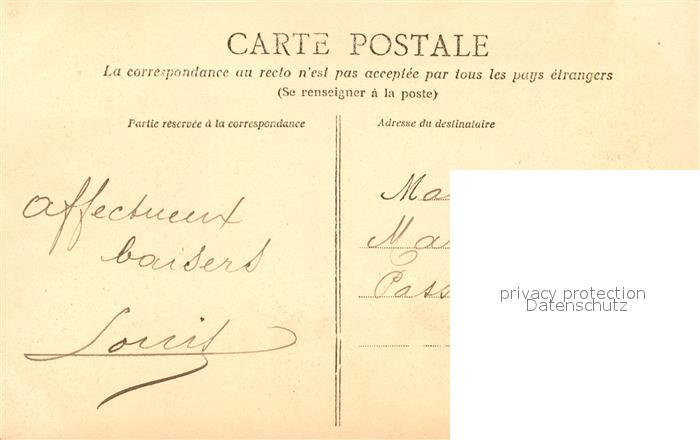 CARTE POSTALE
La correspondance au recto n'est pas acceptée par tous les pays étrangers
(Se renseigner à la poste)
Partie réservée à la correspondance
Adresse du destinataire
Affectueux
baisers
Louis
Ma
Ma
Pass
privacy protection
Datenschutz